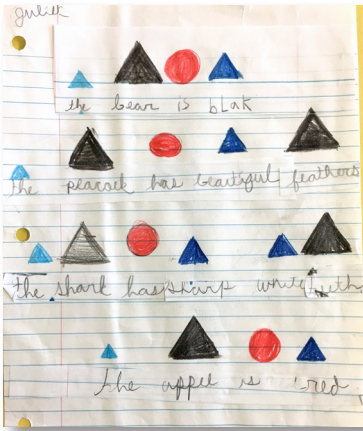 juliet
the bear is blak
the peacock has beautiful feathers
the shark has sharp white teeth
the appel is red